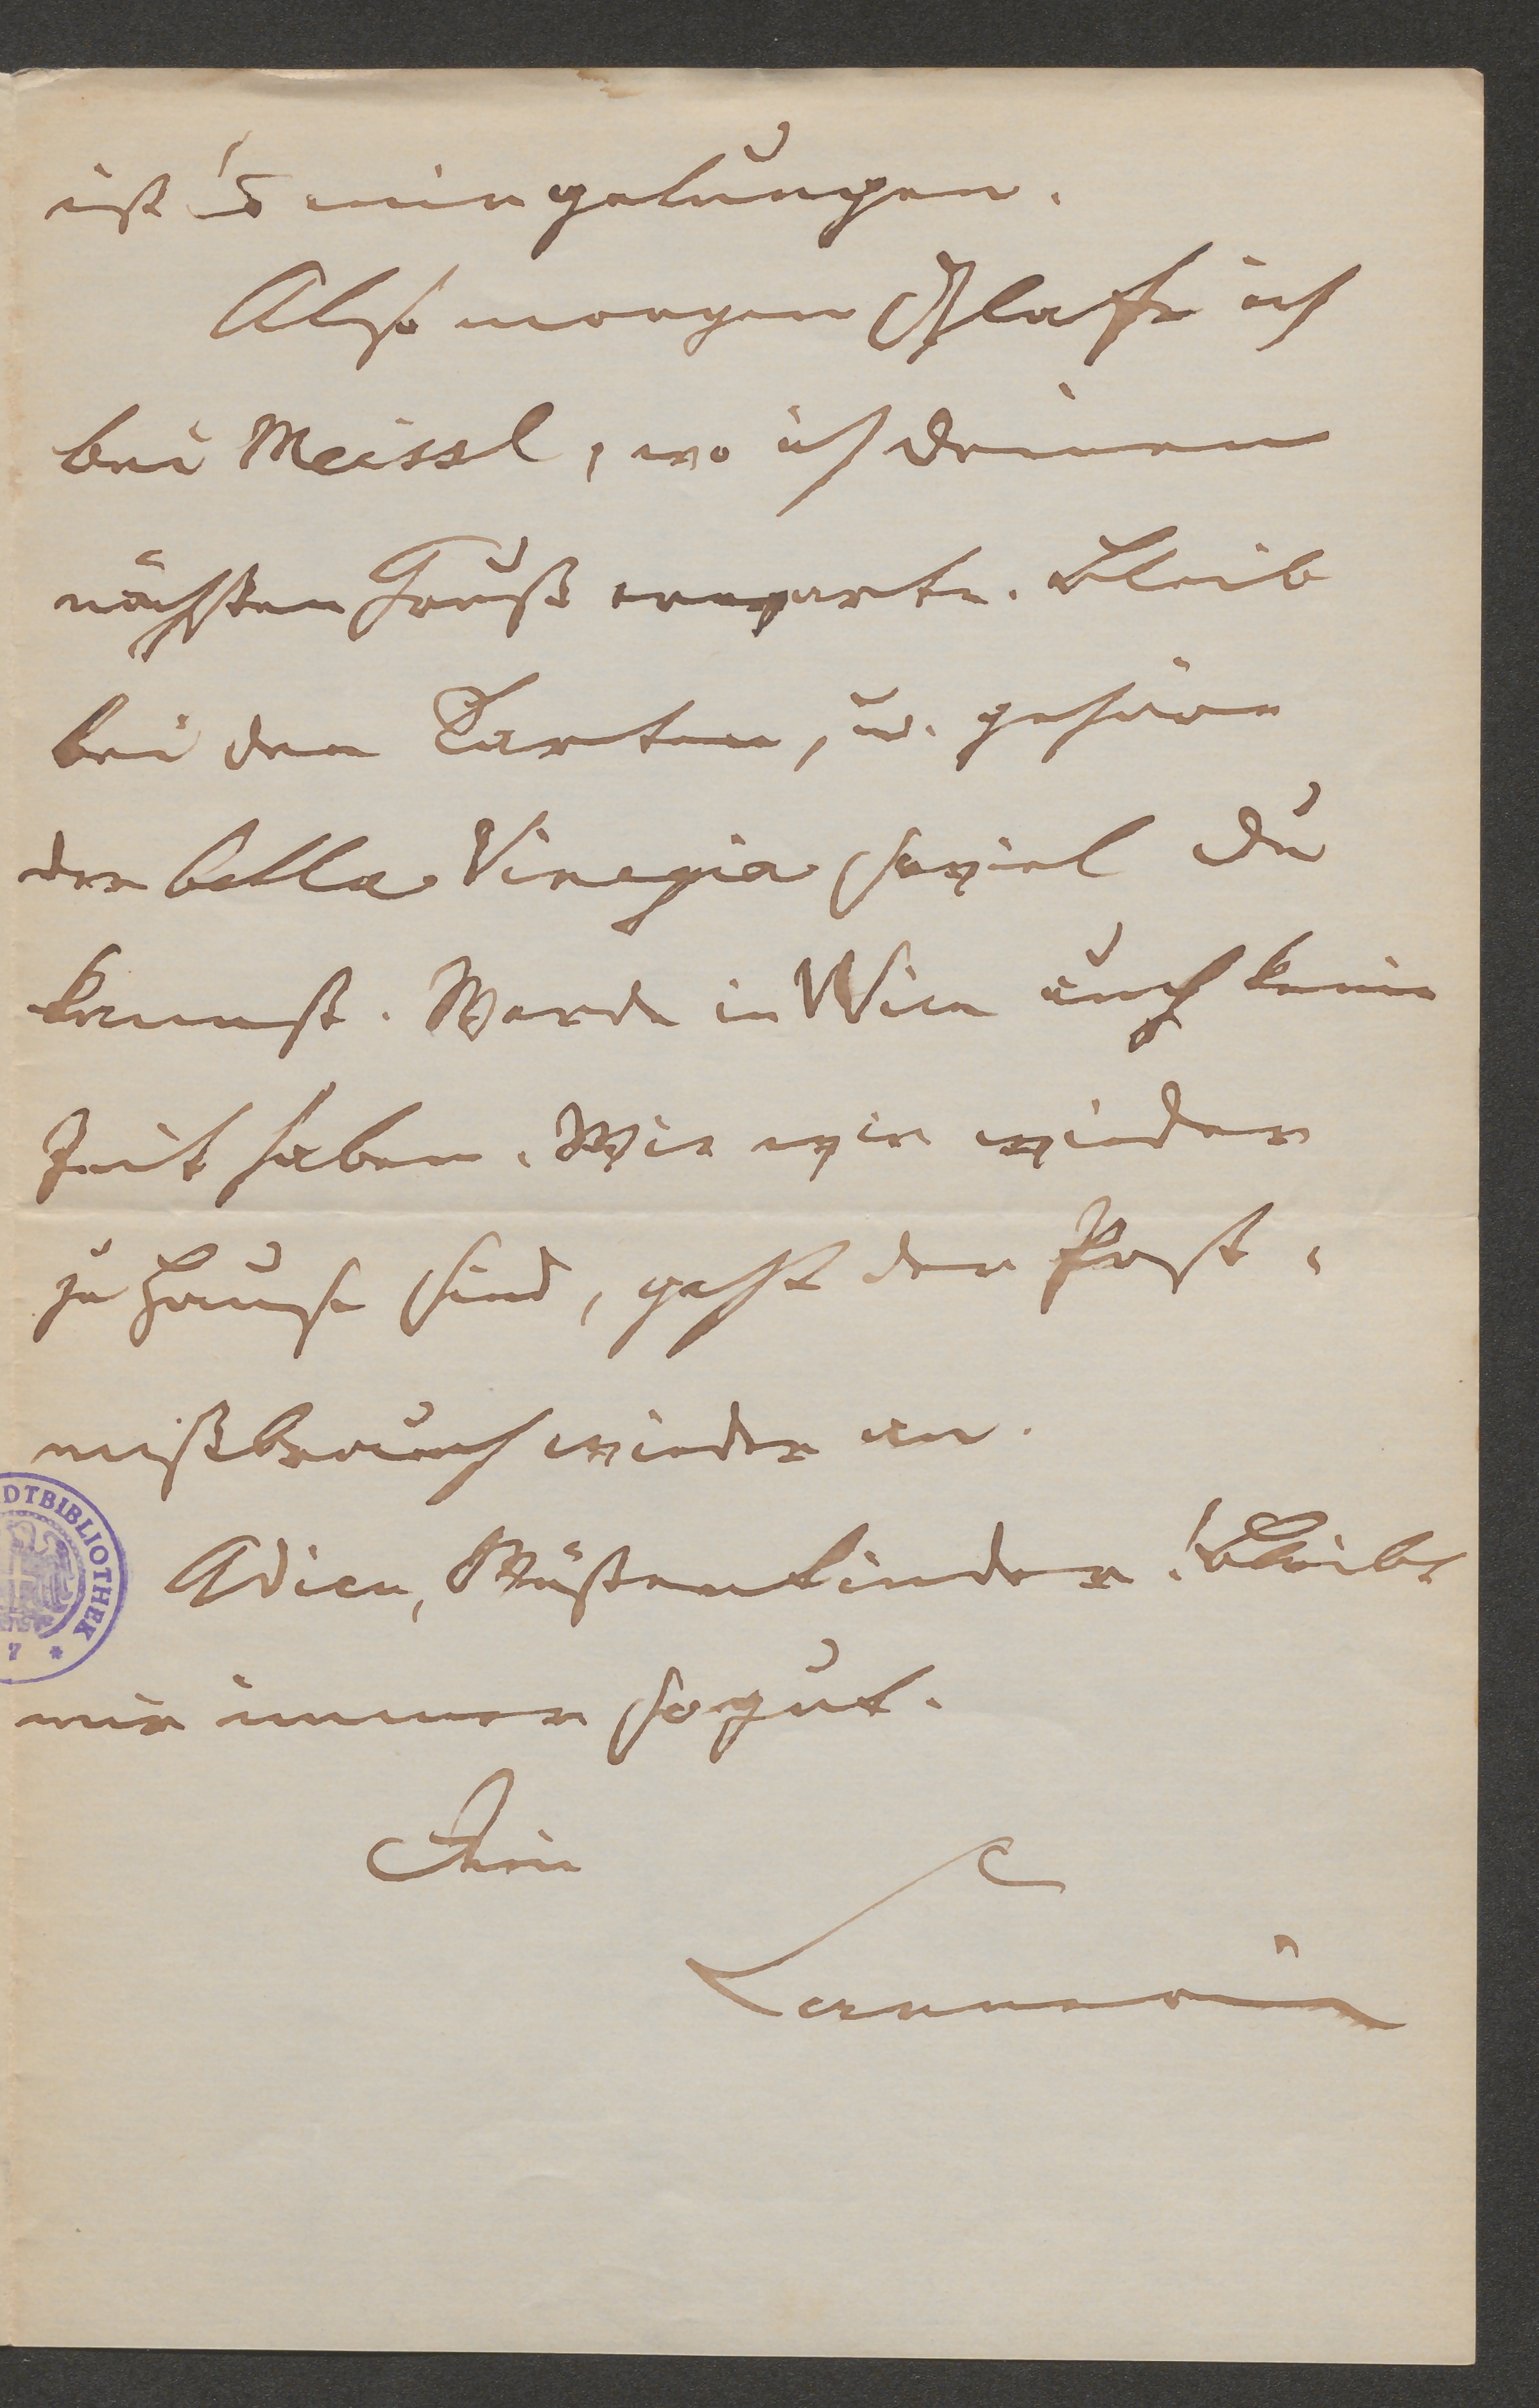 ist 's mir gelungen.
Also morgen schlafe ich
bei Meissl, wo ich Deinen
nächsten Gruß erwarte. Bleib
bei den Karten, u. gehöre
der bella Vinegia soviel Du
kannst. Werde in Wien auch keine
Zeit haben. Wie wir wieder
zu Hause sind, geht der Post-
mißbrauch wieder an.
Adieu, Wüstenkinder! Bleibt
mir immer so gut.
Dein
DTBIBLIOTHEK